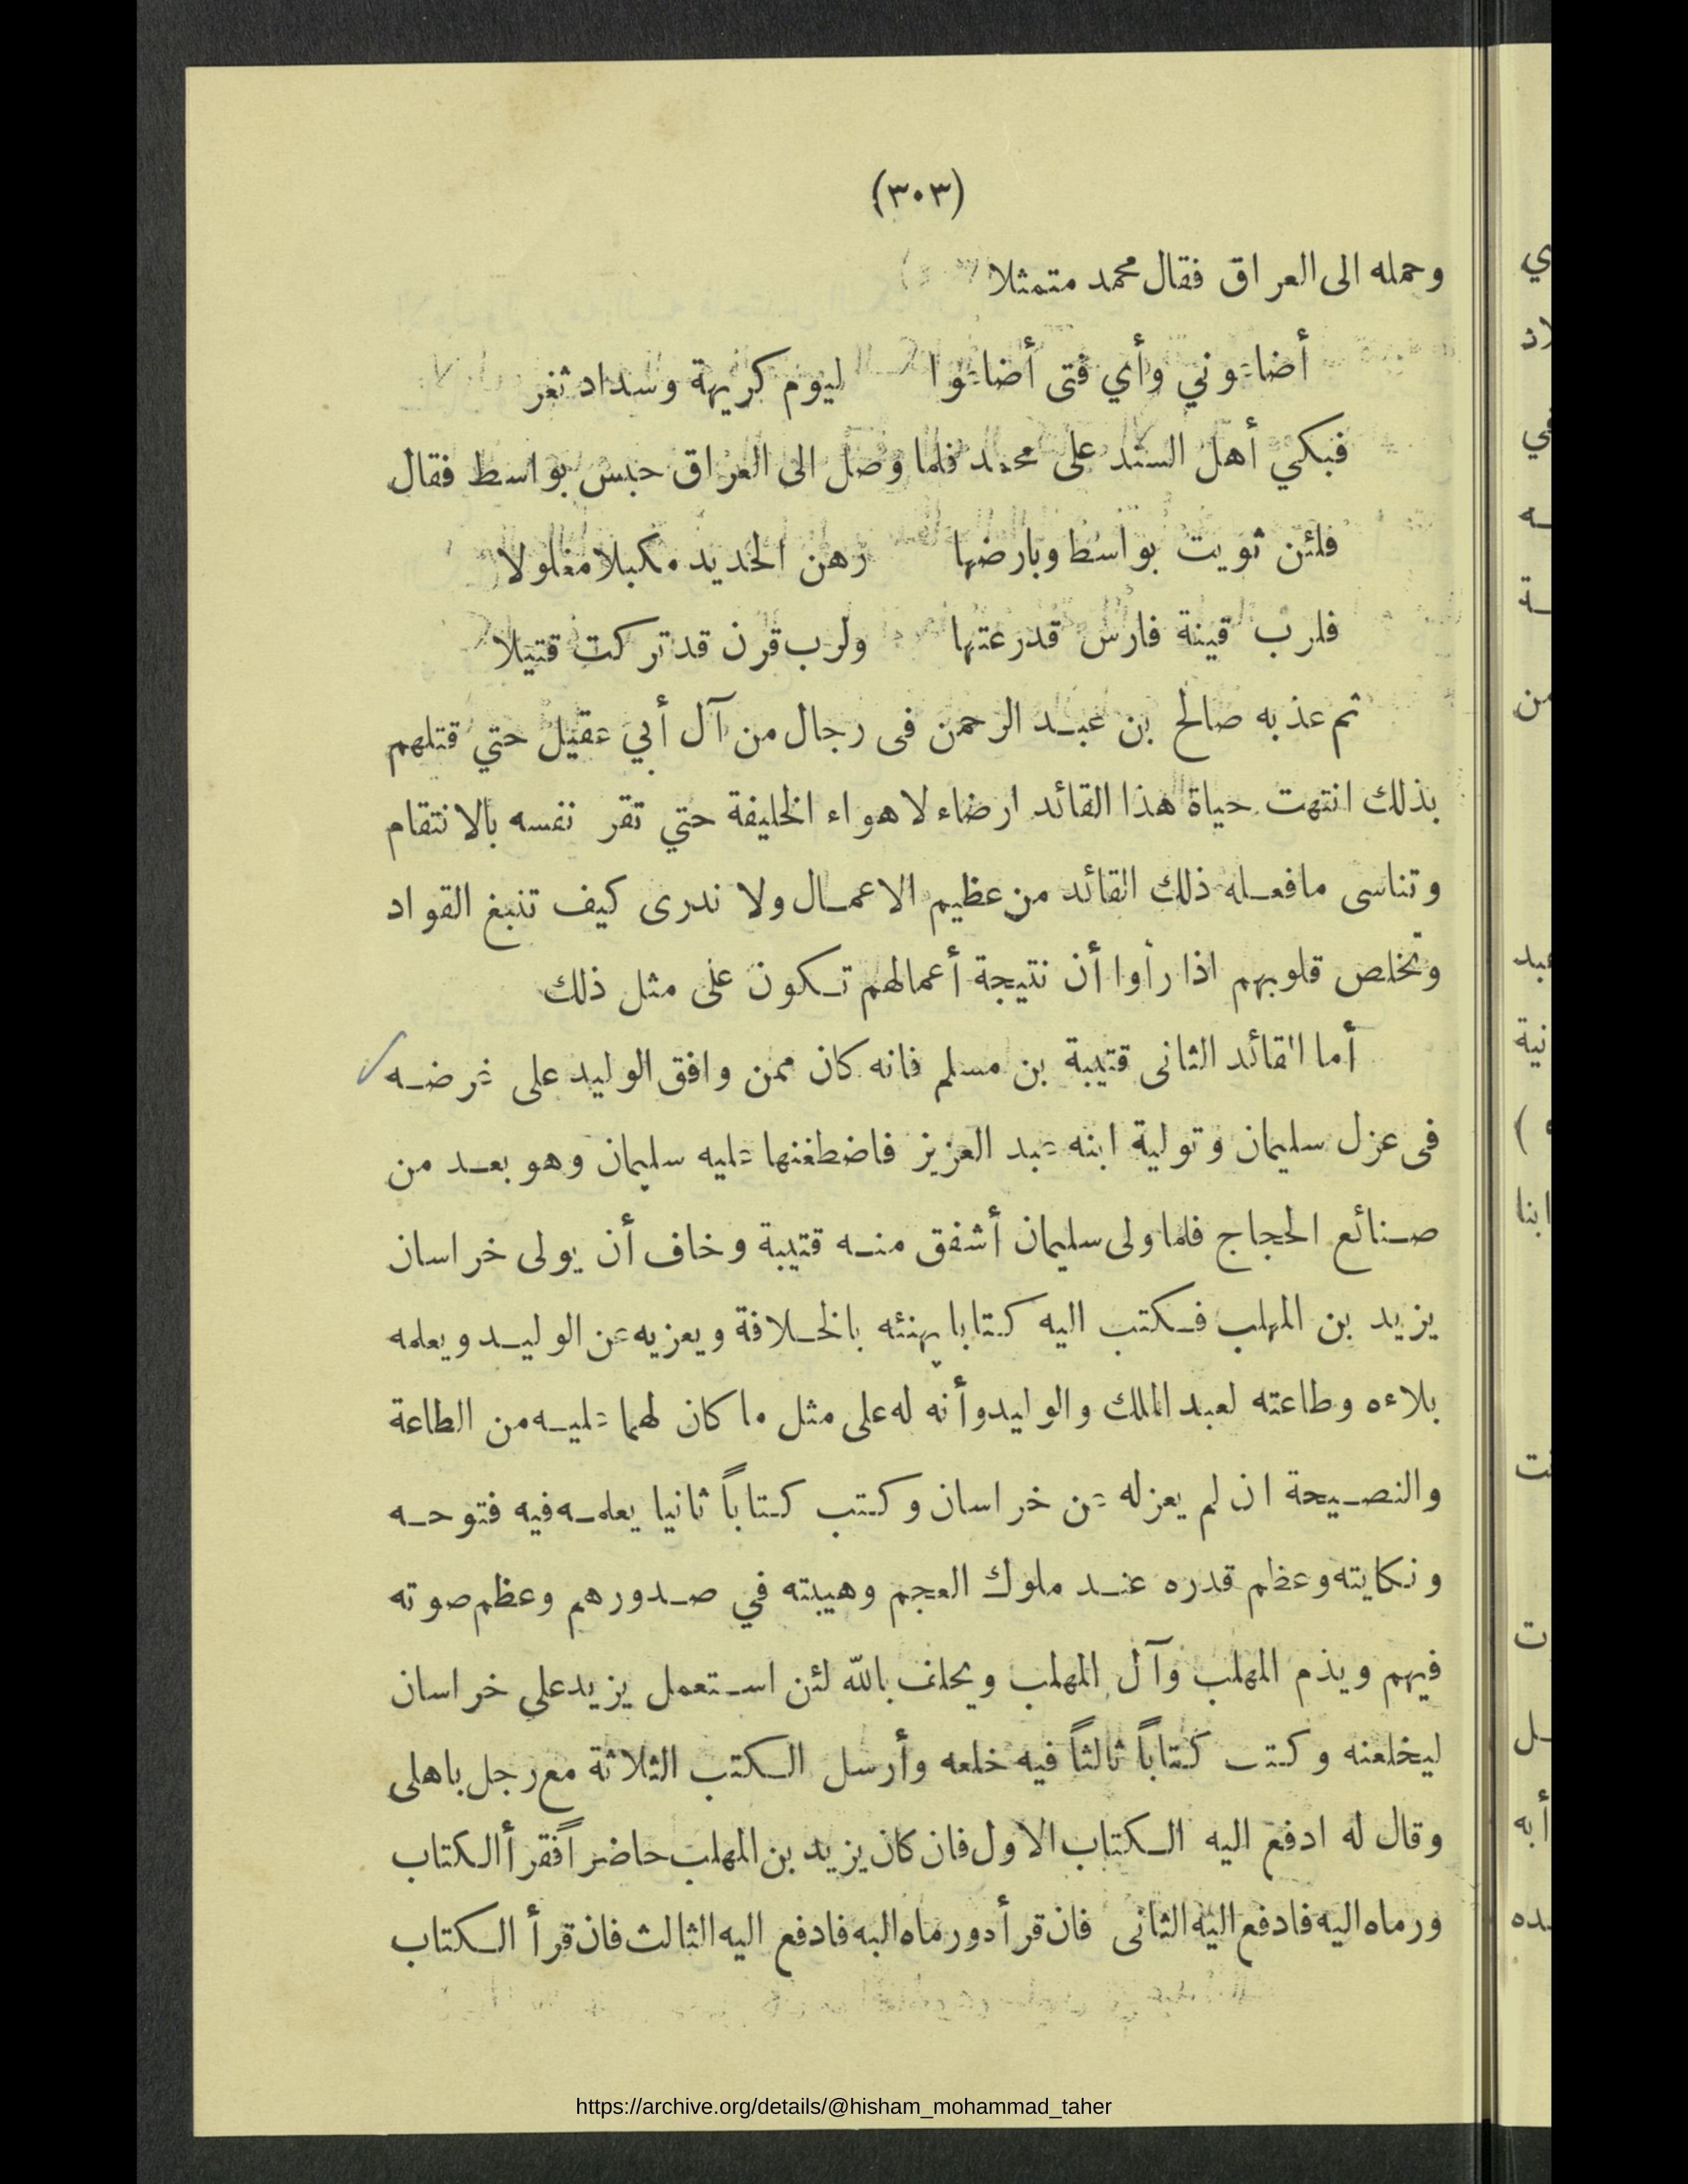 (٣٠٣)
وحمله الى العراق فقال محمد متمثلا
أضاعوني وأي فتى أضاعوا ليوم كريهة وسداد ثغر
فبكي أهل السند على محمد فلما وصل الى العراق حبس بواسط فقال
فلئن ثويت بواسط وبارضها رهن الحديد مكبلا مغلولا
فلرب قينة فارس قد رعتها ولرب قرن قد تركت قتيلا
ثم عذبه صالح بن عبد الرحمن فى رجال من آل أبي عقيل حتي قتلهم
بذلك انتهت حياة هذا القائد ارضاء لاهواء الخليفة حتي تقر نفسه بالانتقام
وتناسى مافعله ذلك القائد من عظيم الاعمال ولا ندرى كيف تنبغ القواد
وتخلص قلوبهم اذا رأوا أن نتيجة أعمالهم تكون على مثل ذلك
أما القائد الثانى قتيبة بن مسلم فانه كان ممن وافق الوليد على غرضه
فى عزل سليمان وتولية ابنه عبد العزيز فاضطغنها عليه سليمان وهو بعد من
صنائع الحجاج فلما ولى سليمان أشفق منه قتيبة وخاف أن يولى خراسان
يزيد بن المهلب فكتب اليه كتابا يهنئه بالخلافة ويعزيه عن الوليد ويعلمه
بلاءه وطاعته لعبد الملك والوليد وأنه له على مثل ما كان لهما عليه من الطاعة
والنصيحة ان لم يعزله عن خراسان وكتب كتاباً ثانيا يعلمه فيه فتوحه
ونكايته وعظم قدره عند ملوك العجم وهيبته في صدورهم وعظم صوته
فيهم ويذم المهلب وآل المهلب ويحلف بالله لئن استعمل يزيد علي خراسان
ليخلعنه وكتب كتاباً ثالثاً فيه خلعه وأرسل الكتب الثلاثة مع رجل باهلى
وقال له ادفع اليه الكتاب الاول فان كان يزيد بن المهلب حاضراً فقرأ الكتاب
ورماه اليه فادفع اليه الثانى فان قرأه ورماه اليه فادفع اليه الثالث فان قرأ الكتاب
https://archive.org/details/@hisham_mohammad_taher